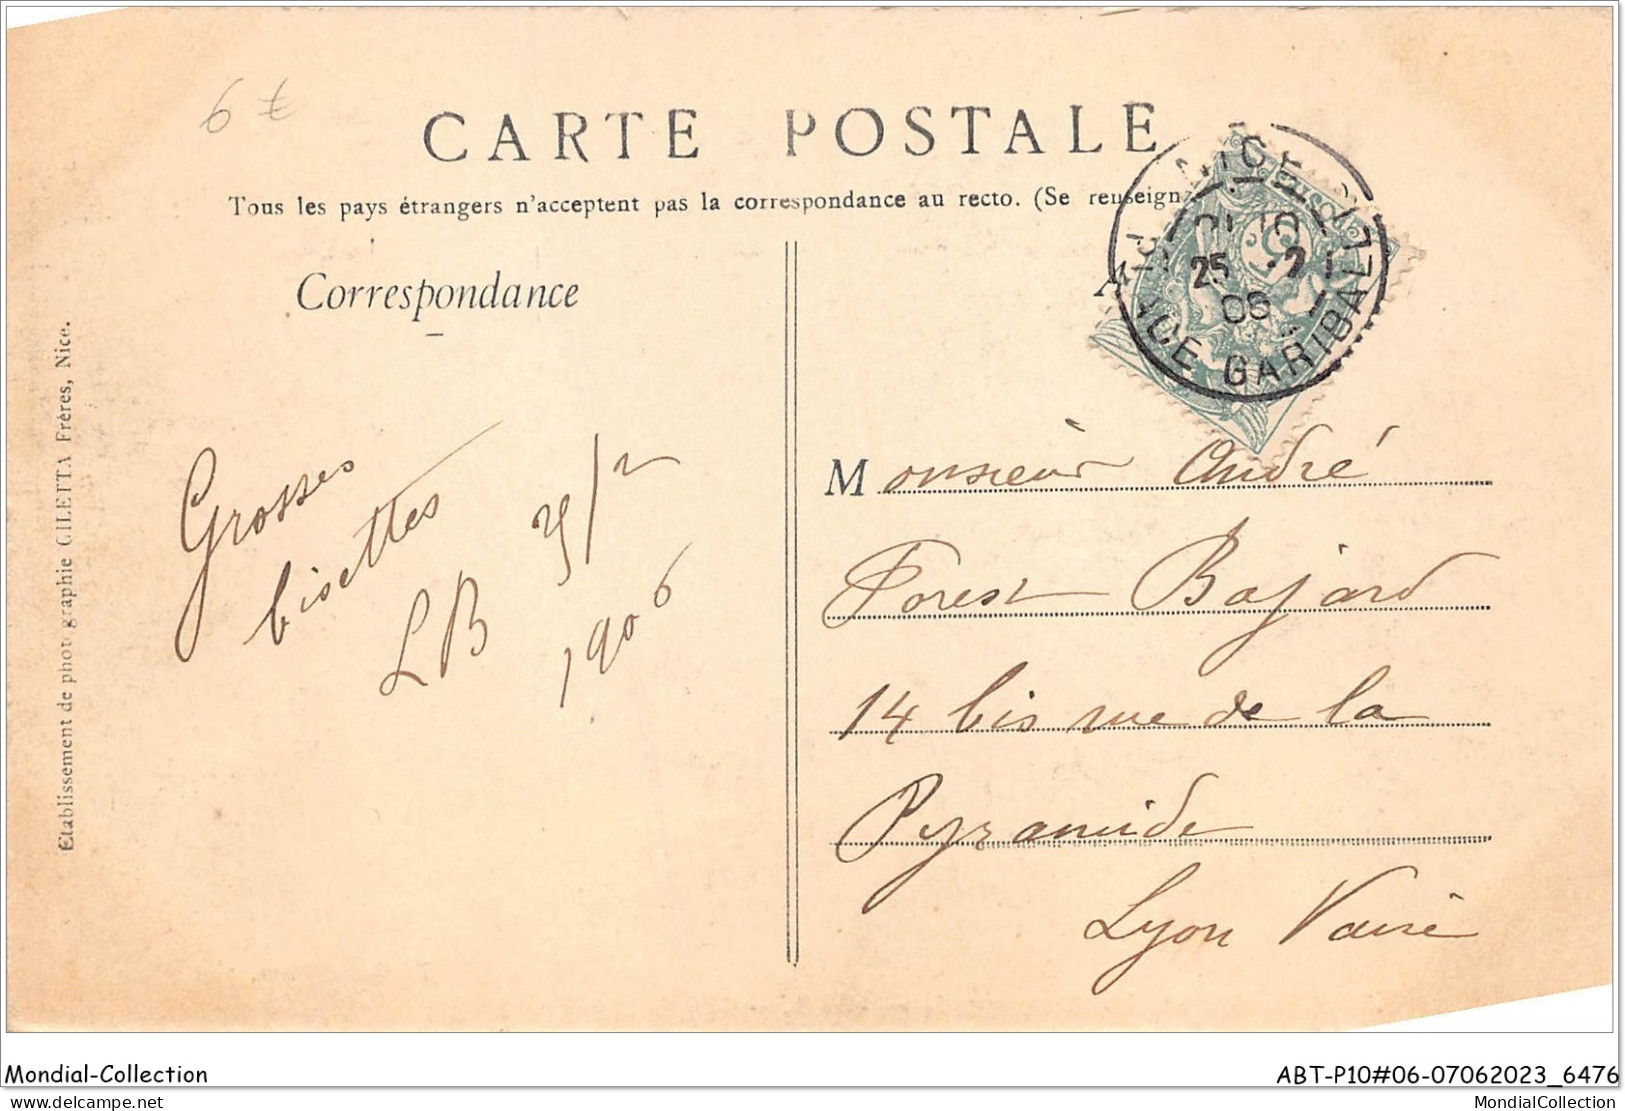 6 €
CARTE POSTALE
Tous les pays étrangers n'acceptent pas la correspondance au recto. (Se renseign
NICE
25 -2
06
PLACE GARIBALDI
Correspondance
Etablissement de photographie GILETTA Frères, Nice.
Grosses
bisettes
LB 25/2
1906
Monsieur André
Forest Bajard
14 bis rue de la
Pyramide
Lyon Vaise
Mondial-Collection
ABT-P10#06-07062023_6476
delcampe.net
MondialCollection